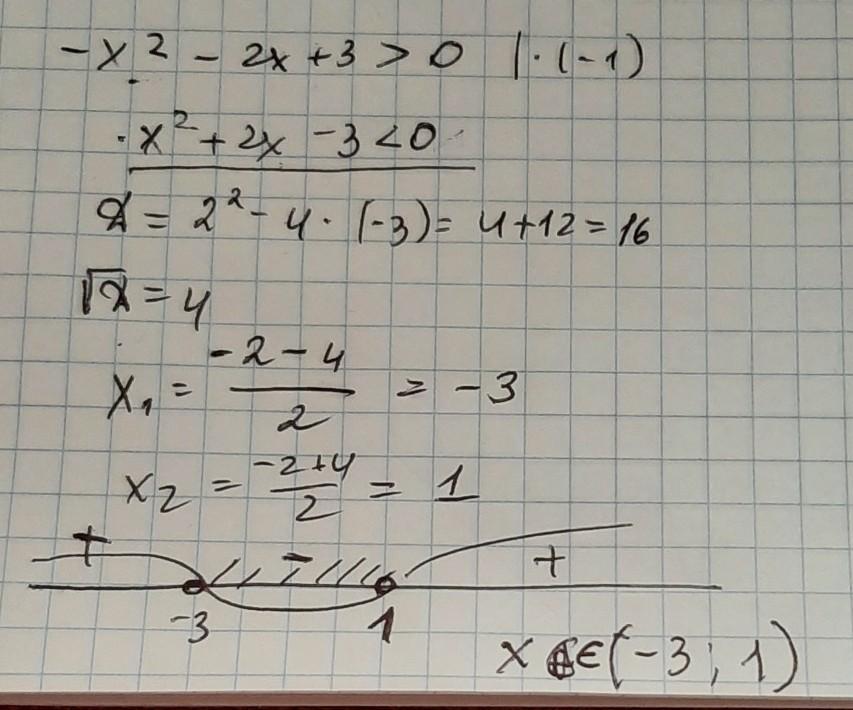 -x² - 2x + 3 > 0 | · (-1)
x² + 2x - 3 < 0
D = 2² - 4 · (-3) = 4 + 12 = 16
√D = 4
x₁ = (-2 - 4)/2 = -3
x₂ = (-2 + 4)/2 = 1
+ - +
-3 1
x ∈ (-3; 1)